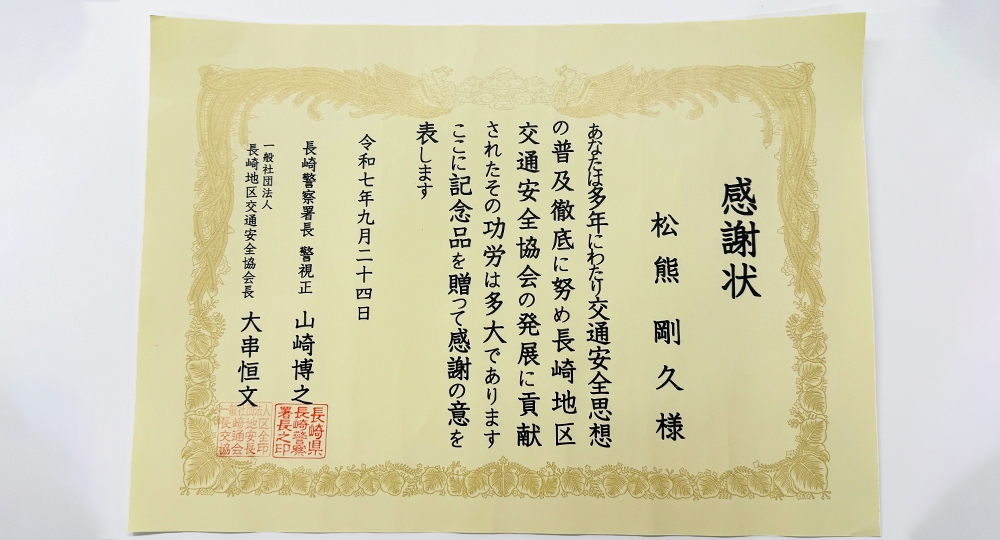 感謝状
松熊 剛久 様
あなたは多年にわたり交通安全思想
の普及徹底に努め長崎地区
交通安全協会の発展に貢献
されたその功労は多大であります
ここに記念品を贈って感謝の意を
表します
令和七年九月二十四日
長崎警察署長 警視正 山崎博之
一般社団法人
長崎地区交通安全協会長 大串恒文
長崎県
長崎警察
署長之印